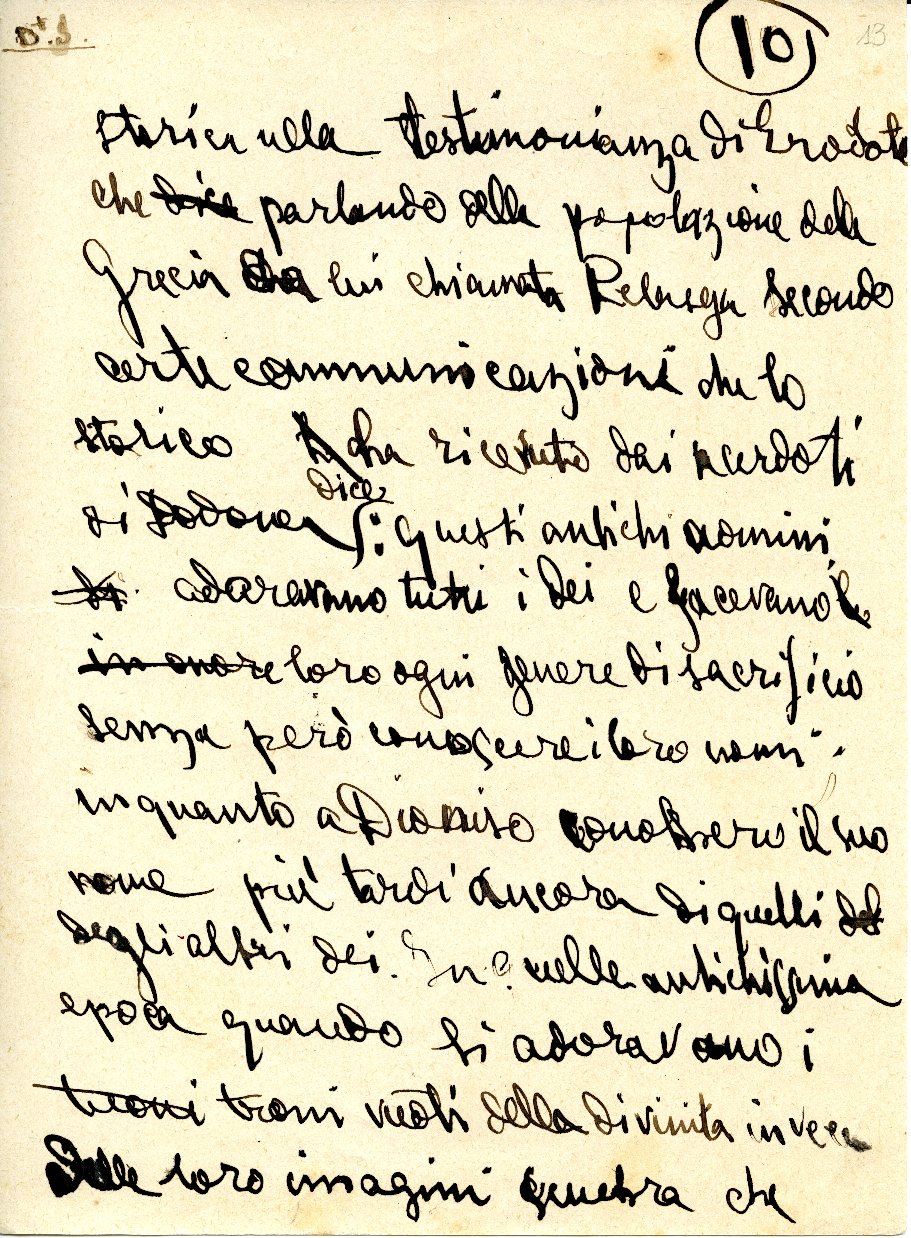 D. S.
10 13
storica nella testimonianza di Erodoto
che dice parlando della popolazione della
Grecia da lui chiamata Pelasga secondo
certe communicazioni che lo
storico ha ricevuto dai sacerdoti
dice
di Dodona : questi antichi uomini
adoravano tutti i dei e facevano
in onore loro ogni genere di sacrificio
senza però conoscere i loro nomi.
in quanto a Dioniso conobbero il suo
nome più tardi ancora di quelli
degli altri dei. nella antichissima
epoca quando si adoravano i
troni troni vuoti della divinita invece
delle loro imagini sembra che